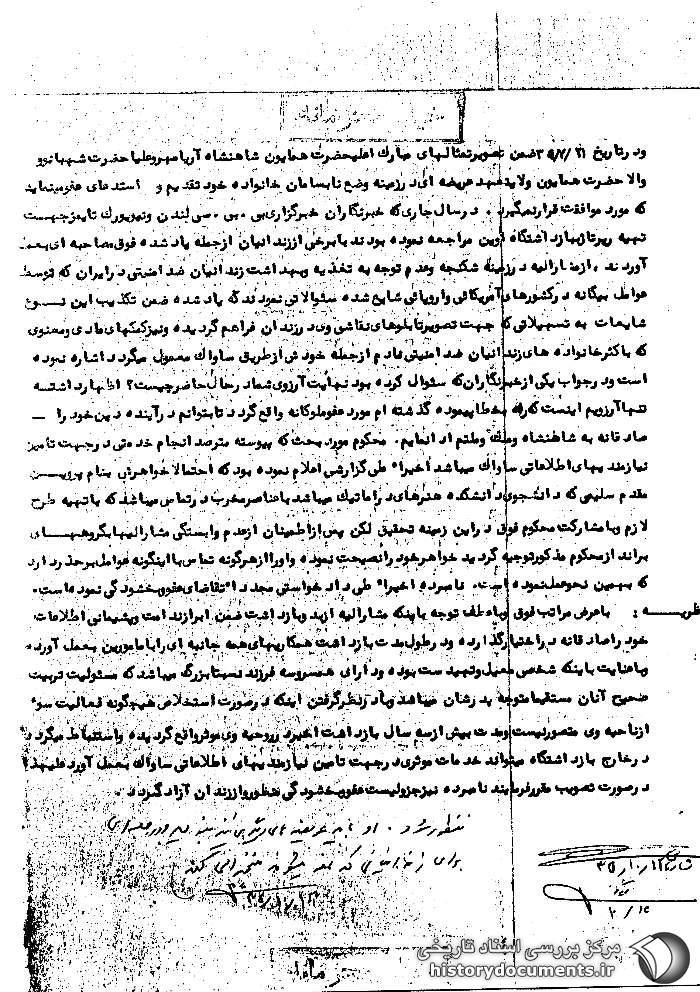 ود رتاریخ ۳۵/۷/۲۱ ضمن تصویر تمثالهای مبارک اعلیحضرت همایون شاهنشاه آریامهر و علیاحضرت شهبانو و
والا حضرت همایون ولایتعهد عریضه ای در زمینه وضع نابسامان خانواده خود تقدیم و استدعای عفو مینماید
که مورد موافقت قرار نمیگیرد . در سال جاری که خبرنگاران خبرگزاری بی . بی . سی لندن و نیویورک تایمز جهت
تهیه رپرتاژ ببازداشتگاه اوین مراجعه نموده بودند با برخی از زندانیان از جمله یاد شده فوق مصاحبه ای بعمل
آوردند . از مشارالیه در زمینه شکنجه وعدم توجه به تغذیه و بهداشت زندانیان ضد امنیتی در ایران که توسط
عوامل بیگانه در کشورهای آمریکائی و اروپائی شایع شده سئوالاتی نمودند که یاد شده ضمن تکذیب این نوع
شایعات به تسهیلاتی که جهت تصویر تابلوهای نقاشی وی در زندان فراهم گردیده و نیز کمکهای مادی و معنوی
که باکثر خانواده های زندانیان ضد امنیتی نادم از جمله خودش از طریق ساواک معمول میگردد اشاره نموده
است ود رجواب یکی از خبرنگاران که سئوال کرده بود نهایت آرزوی شما در حال حاضر چیست؟ اظهار داشته
تنها آرزویم اینست که راه بخطا پیموده گذشته ام مورد عفو ملوکانه واقع گردد تا بتوانم در آینده دین خود را
صادقانه به شاهنشاه وملت و وطنم ادا نمایم . محکوم مورد بحث که پیوسته مترصد انجام خدمتی در جهت تامین
نیازمندیهای اطلاعاتی ساواک میباشد اخیراً طی گزارشی اعلام نموده بود که احتمالا خواهرش بنام پروین
مقدم سلیمی که دانشجوی دانشکده هنرهای دراماتیک میباشد با عناصر مخرب در تماس میباشد که با تهیه طرح
لازم وبا مشارکت محکوم فوق در این زمینه تحقیق لکن پس از اطمینان از عدم وابستگی مشارالیها بگروههای
برانداز محکوم مذکور توجیه گردید خواهر خود را نصیحت نموده و او را از هرگونه تماس با اینگونه عوامل برحذر دارد
که بهمین نحو عمل نموده است . نامبرده اخیراً طی دادخواستی مجدداً تقاضای عفو و بخشودگی نموده است .
نظریه : باعرض مراتب فوق وبا عطف توجه باینکه مشارالیه از بدو بازداشت ضمن ابراز ندامت وپشیمانی اطلاعات
خود را صادقانه در اختیار گذارده ود رطول مدت بازداشت همکاریهای همه جانبه ای را با مامورین بعمل آورده
وبا عنایت باینکه شخصی معیل وتهیدست بوده ودارای همسر وسه فرزند نسبتا بزرگ میباشد که مسئولیت تربیت
صحیح آنان مستقیما متوجه پدرشان میباشد وبا در نظر گرفتن اینکه در صورت استخلاص هیچگونه فعالیت سوء
از ناحیه وی متصور نیست ومدت بیش از سه سال بازداشت اخیر در روحیه وی موثر واقع گردیده واستنباط میگردد
در خارج بازداشتگاه میتواند خدمات موثری در جهت تامین نیازمندیهای اطلاعاتی ساواک بعمل آورد علیهذا
در صورت تصویب مقرر فرمایند نامبرده نیز جزو لیست عفو و بخشودگی منظور و از زندان آزاد گردد .
۳۵/۱۰/۱۲
مرکز بررسی اسناد تاریخی
historydocuments.ir